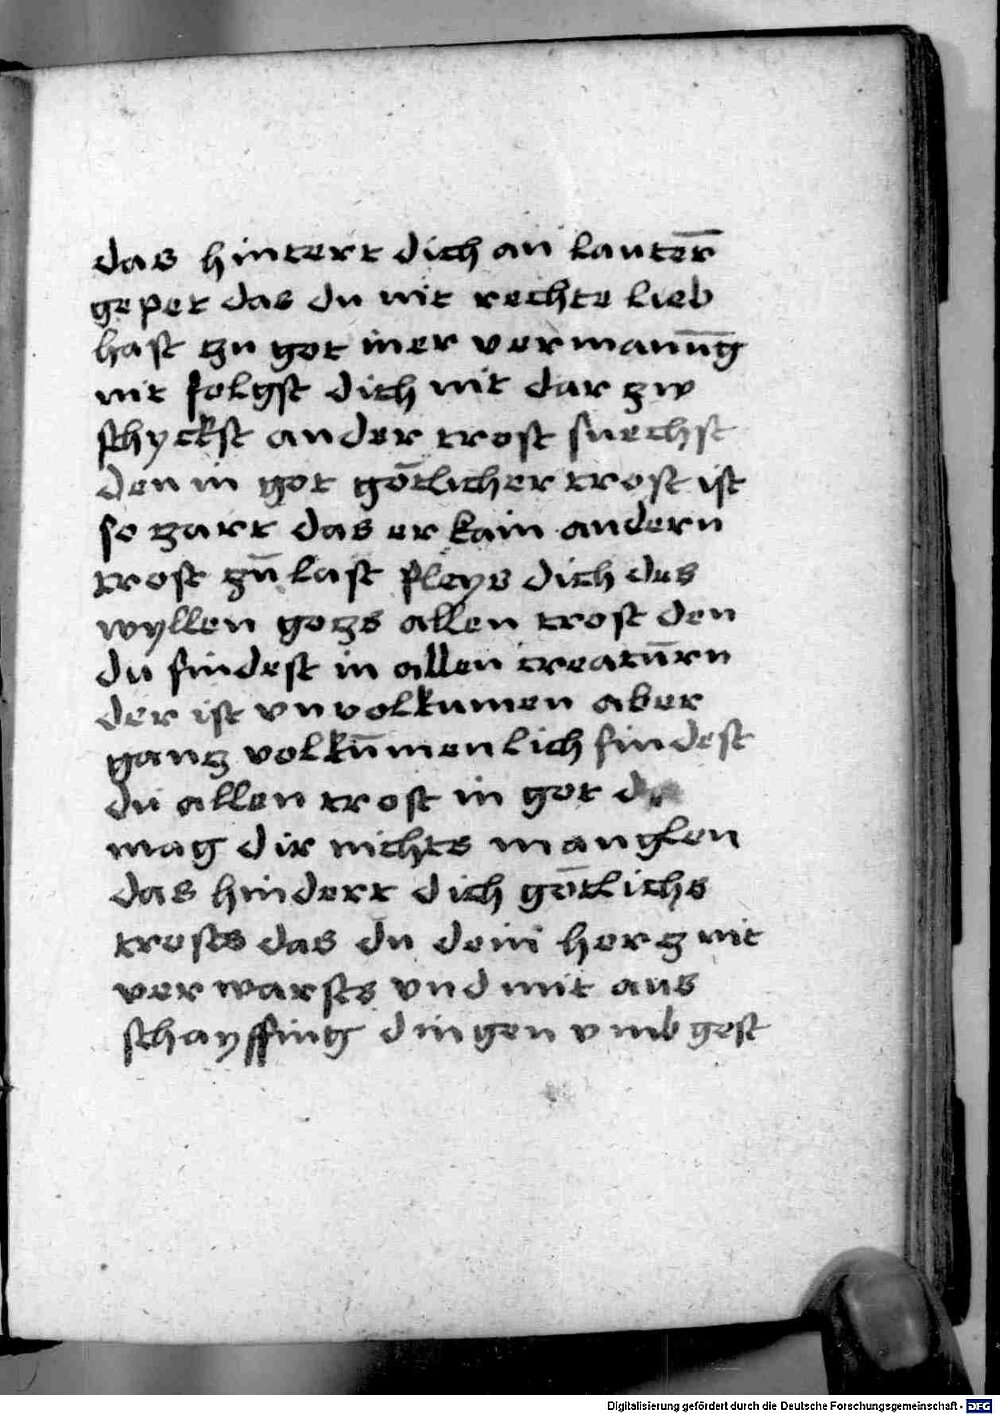 das hintert dich an lauter̄
gepet das du nit rechte lieb
hast zu got iner vermanūg
nit folgst dich nit dar zw
schyckst ander trost suechst
den in got gōtlicher trost ist
so zart das er kain andern
trost zū last fleys dich des
wyllen gozs allen trost den
du findest in allen creatūrn
der ist vnvolkumen aber
ganz volkūmenlich findest
du allen trost in got
mag dir nichts manglen
das hindert dich gōtlichs
trosts das du dein herz nit
verwarsts vnd mit aus
schayffing dingen vmb gest
Digitalisierung gefördert durch die Deutsche Forschungsgemeinschaft - DFG